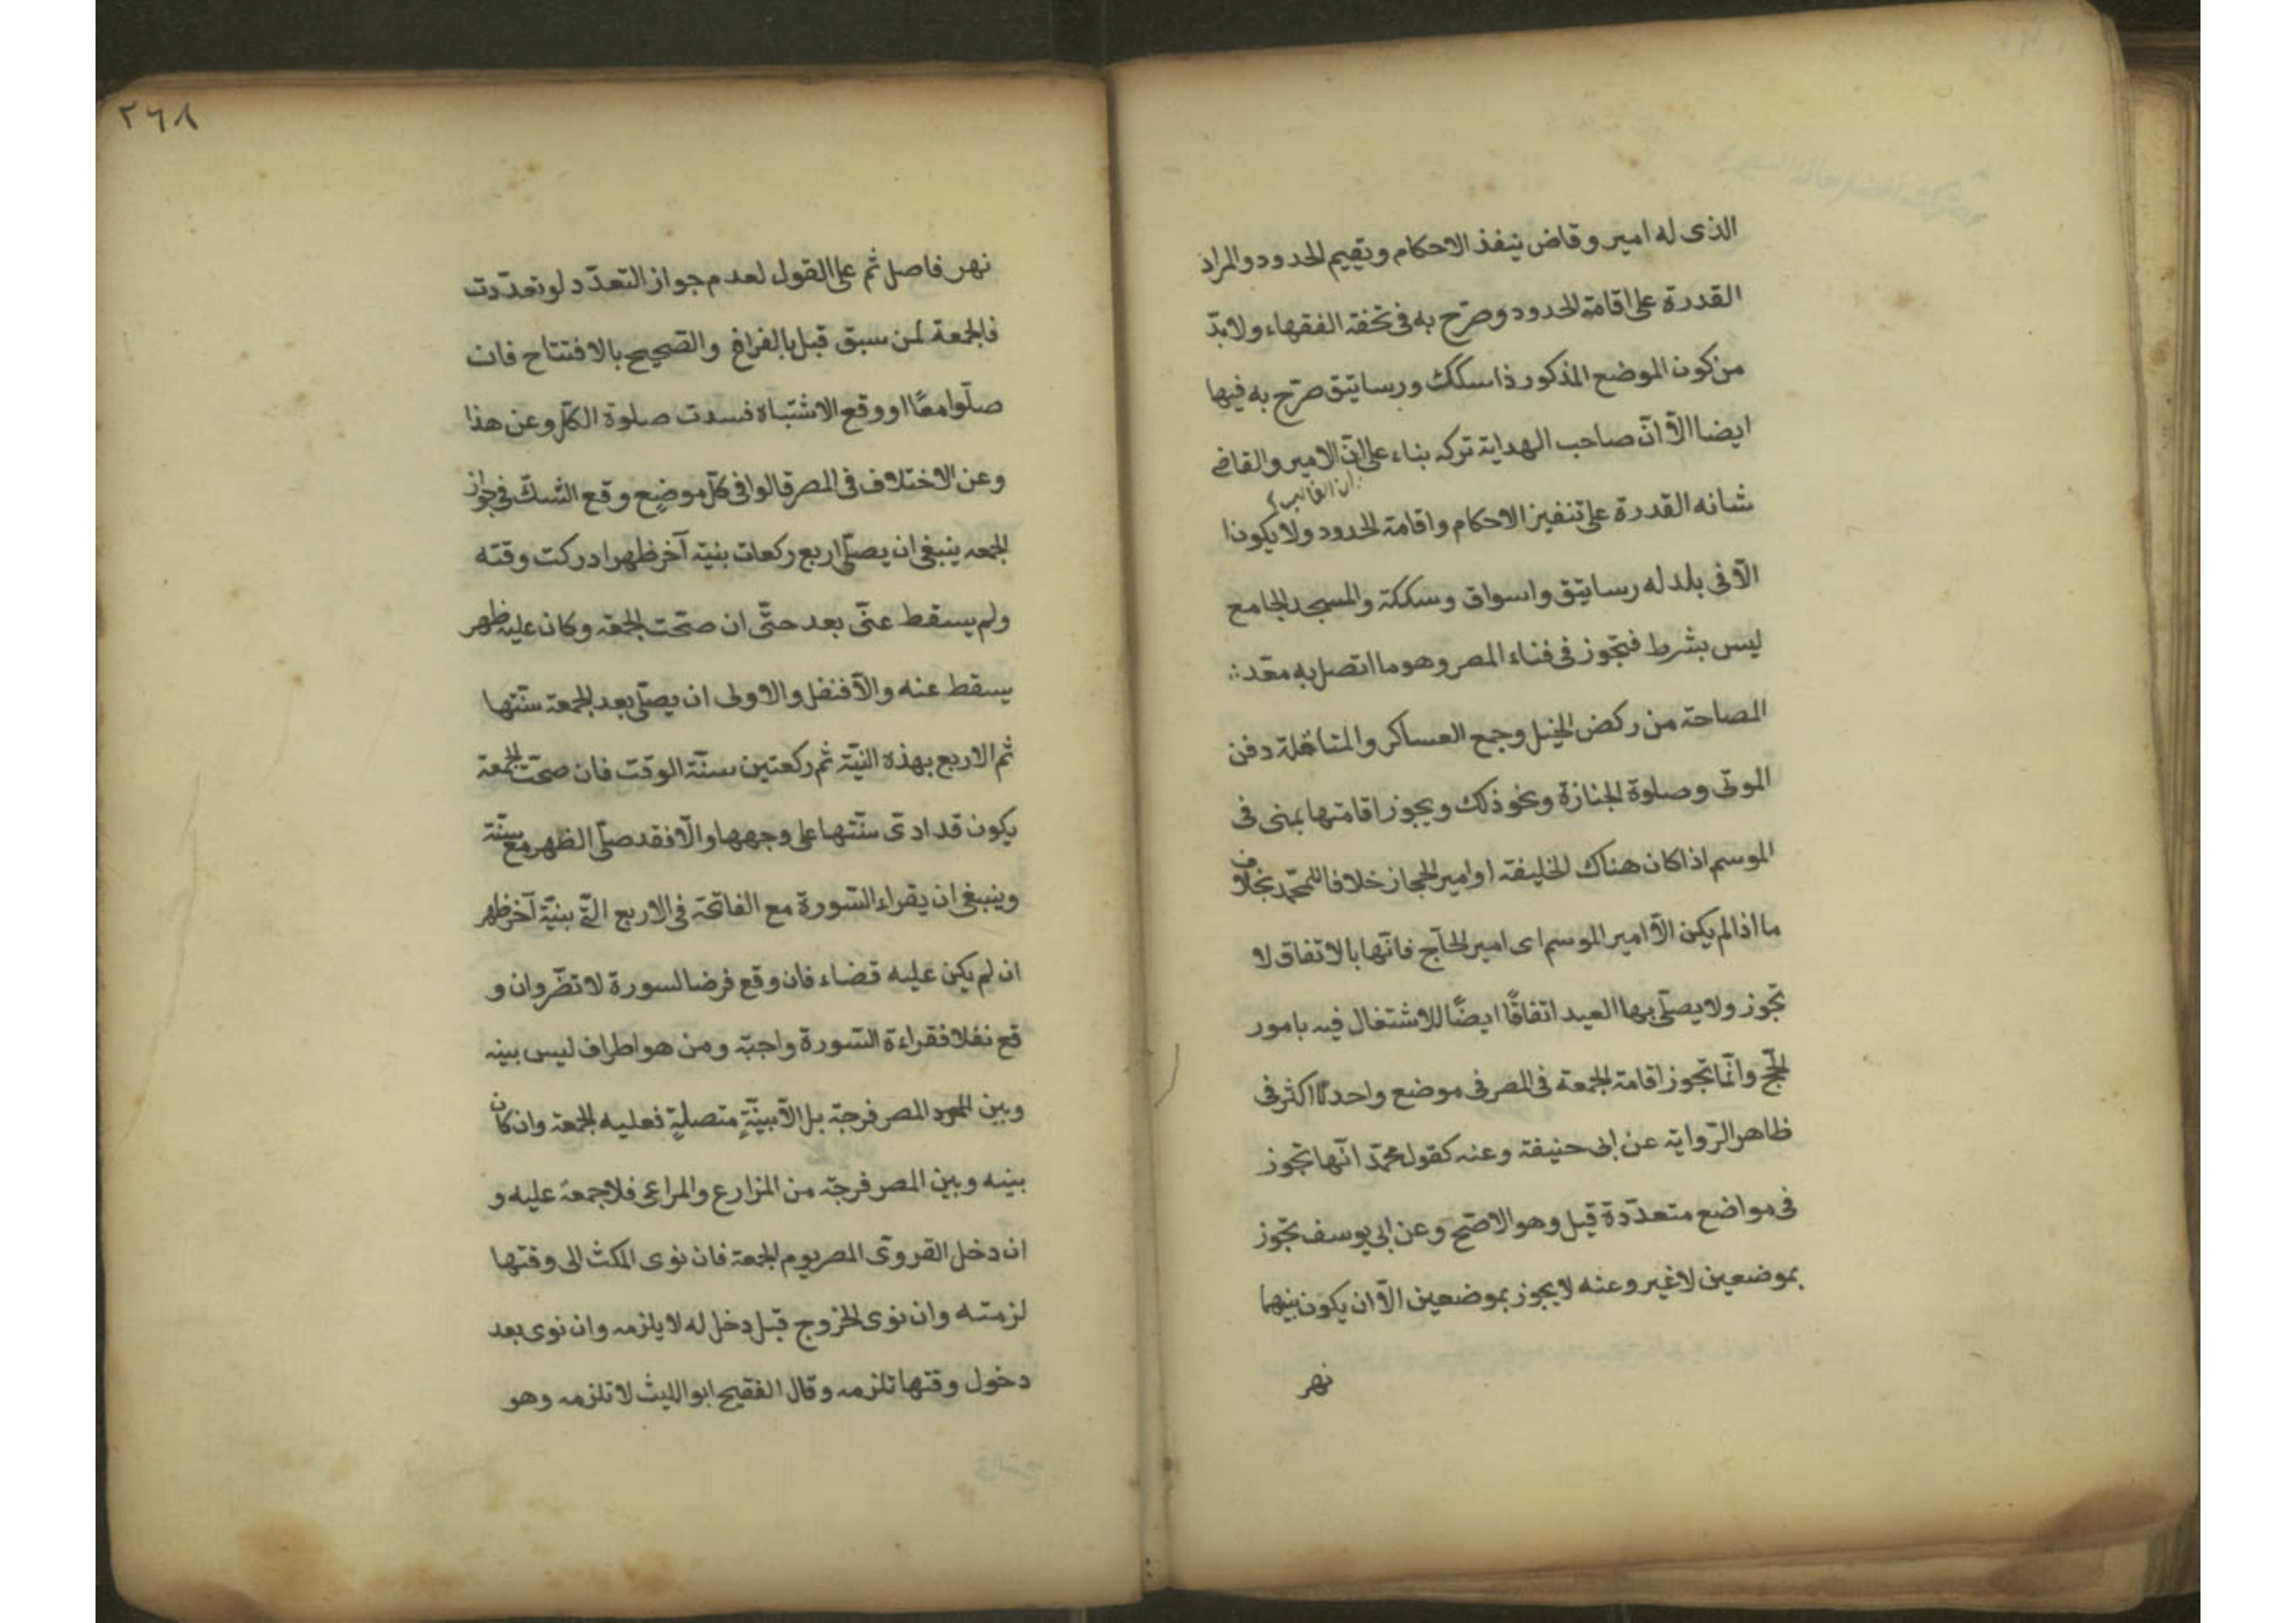 الذى له امير وقاض ينفذ الاحكام ويقيم الحدود والمراد
القدرة على اقامة الحدود وصرّح به فى تحفة الفقهاء ولا بدّ
من كون الموضع المذكور ذا سكك ورساتيق صرّح به فيها
ايضا الّا انّ صاحب الهداية تركه بناء على انّ الامير والقاضى
شانه القدرة على تنفيز الاحكام واقامة الحدود ولا يكونا
الّا فى بلد له رساتيق واسواق وسككة والمسجد الجامع
ليس بشرط فتجوز فى فناء المصر وهو ما اتصل به معّد
المصاحة من ركض الخيل وجمع العساكر والمناضلة دفن
الموتى وصلوة الجنازة ونحو ذلك ويجوز اقامتها بمنى فى
الموسم اذا كان هناك الخليفة او امير الحجاز خلافا لمحمّد بخلاف
ما اذا لم يكن الّا امير الموسم اى امير الحاّج فانّها بالاتّفاق لا
تجوز ولا يصلّى بها العيد اتفاقًا ايضًا للاشتغال فيه بامور
الحّج وانّما تجوز اقامة الجمعة فى المصر فى موضع واحد لا اكثر فى
ظاهر الرّواية عن ابى حنيفة وعنه كقول محمّد انّها تجوز
فى مواضع متعدّدة قيل وهو الاصّح وعن ابى يوسف تجوز
بموضعين لا غير وعنه لا يجوز بموضعين الّا ان يكون بينهما
نهر
٢٦٨
نهر فاصل ثم على القول لعدم جواز التعدّد لو تعدّدت
فالجمعة لمن سبق قيل بالفراغ والصّحيح بالافتتاح فان
صلّوا معًا او وقع الاشتباه فسدت صلوة الكلّ وعن هذا
وعن الاختلاف فى المصر قالوا فى كلّ موضع وقع الشك فى جواز
الجمعه ينبغى ان يصلّى اربع ركعات بنية آخر ظهر ادركت وقته
ولم يسقط عنّى بعد حتّى ان صحّت الجمعة وكان عليه ظهر
يسقط عنه والّا فنفل والاولى ان يصلّى بعد الجمعة سنّتها
ثم الاربع بهذه النيّة ثم ركعتين سنّة الوقت فان صحت الجمعة
يكون قد ادّى سنّتها على وجهها والّا فقد صلّى الظهر مع سنّته
وينبغى ان يقراء السّورة مع الفاتحة فى الاربع الّتى بنيّة آخر ظهر
ان لم يكن عليه قضاء فان وقع فرضا لسورة لا تضّر وان و
قع نفلا فقراءة السّورة واجبة ومن هو اطراف ليس بينه
وبين المصر فرجة بل الّابنيّةٍ متصلةٍ فعليه الجمعة وان كان
بينه وبين المصر فرجة من المزارع والمراعى فلا جمعة عليه و
ان دخل القروىّ المصر يوم الجمعة فان نوى المكث الى وقتها
لزمته وان نوى الخروج قبل دخل له لا يلزمه وان نوى بعد
دخول وقتها تلزمه وقال الفقيح ابو الليث لا تلزمه وهو